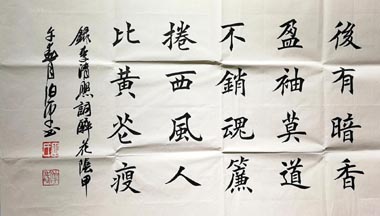 後有暗香
盈袖莫道
不銷魂簾
捲西風人
比黃花瘦
錄李清照詞醉花陰甲
午月書